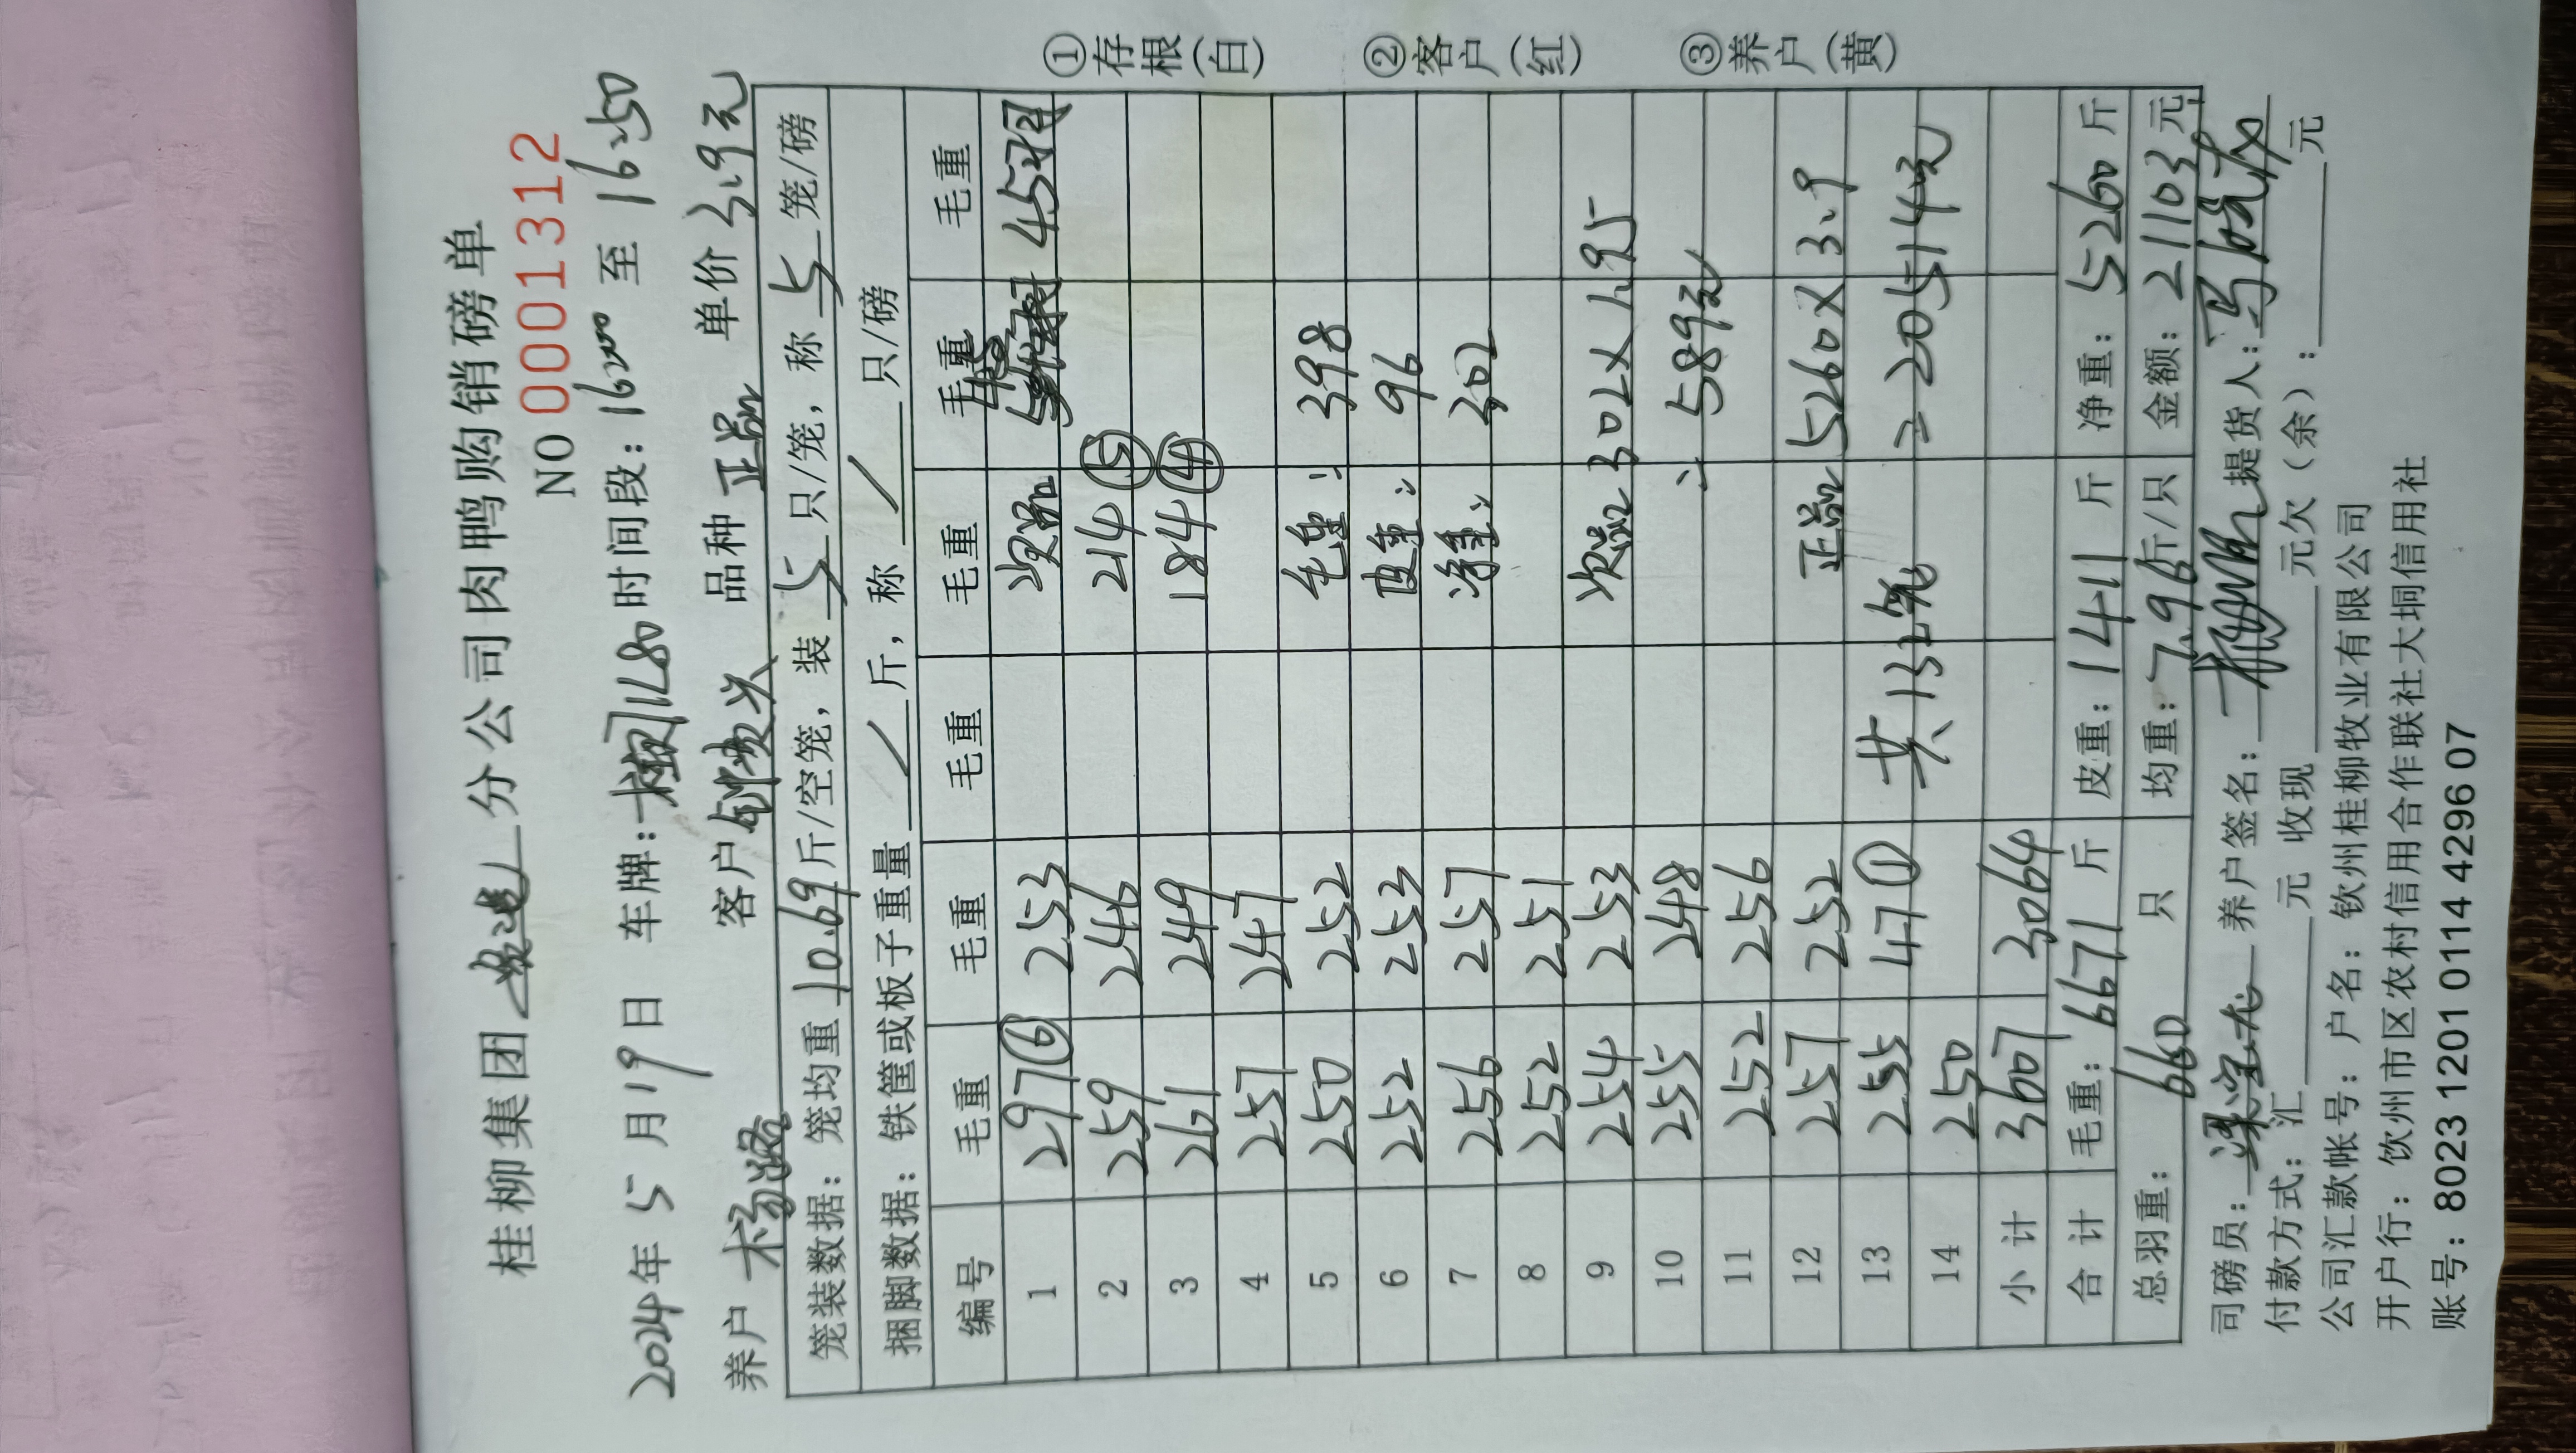 桂柳集团 分公司肉鸭购销磅单
NO 0001312
2024年 5 月 19 日 车牌: 1L80 时间段: 16:00 至 16:50
养户 杨 客户 品种 正品 单价 3.9元
笼装数据: 笼均重 10.69 斤/空笼, 装 5 只/笼, 称 5 笼/磅
捆脚数据: 铁筐或板子重量 / 斤, 称 / 只/磅
编号 毛重 毛重 毛重 毛重 毛重 毛重
1 297⑥ 253 次品 45羽
2 259 246 214⑤
3 261 249 184④
4 257 247
5 250 252 毛重: 398
6 252 253 皮重: 96
7 256 257 净重: 302
8 252 251
9 254 253 次品 302×1.95
10 255 248 = 589元
11 252 256
12 257 252 正品 5260×3.9
13 255 47① 共132笼 = 20514元
14 250
小计 3607 3064
合计 毛重: 6671 斤 皮重: 1411 斤 净重: 5260 斤
总羽重: 660 只 均重: 7.96斤/只 金额: 21103元
司磅员: 养户签名: 提货人:
付款方式: 汇 元 收现 元欠(余): 元
公司汇款帐号: 户名: 钦州桂柳牧业有限公司
开户行: 钦州市区农村信用合作联社大垌信用社
账号: 8023 1201 0114 4296 07
①存根(白)
②客户(红)
③养户(黄)